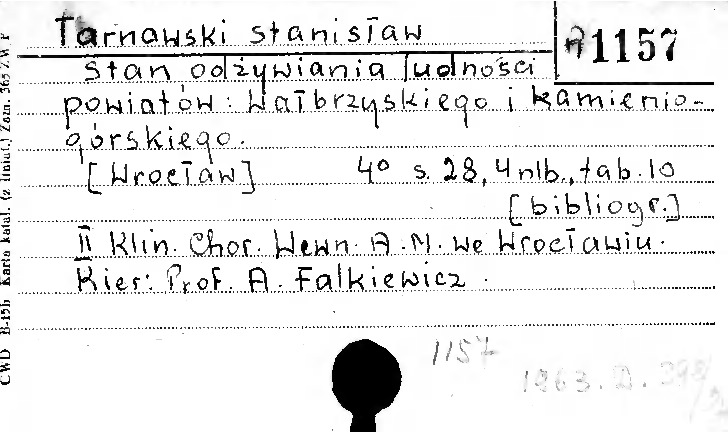 Tarnawski Stanisław
A 1157
Stan odżywiania ludności
powiatów: Wałbrzyskiego i Kamienio-
górskiego.
[Wrocław] 4° s. 28, 4 nlb., tab. 10
[bibliogr.]
II Klin. Chor. Wewn. A.M. we Wrocławiu.
Kier: Prof. A. Falkiewicz.
1157
1963. D.
CWD B-15b Karta katal. (z liniat.) Zam. 365 Z.W.P.